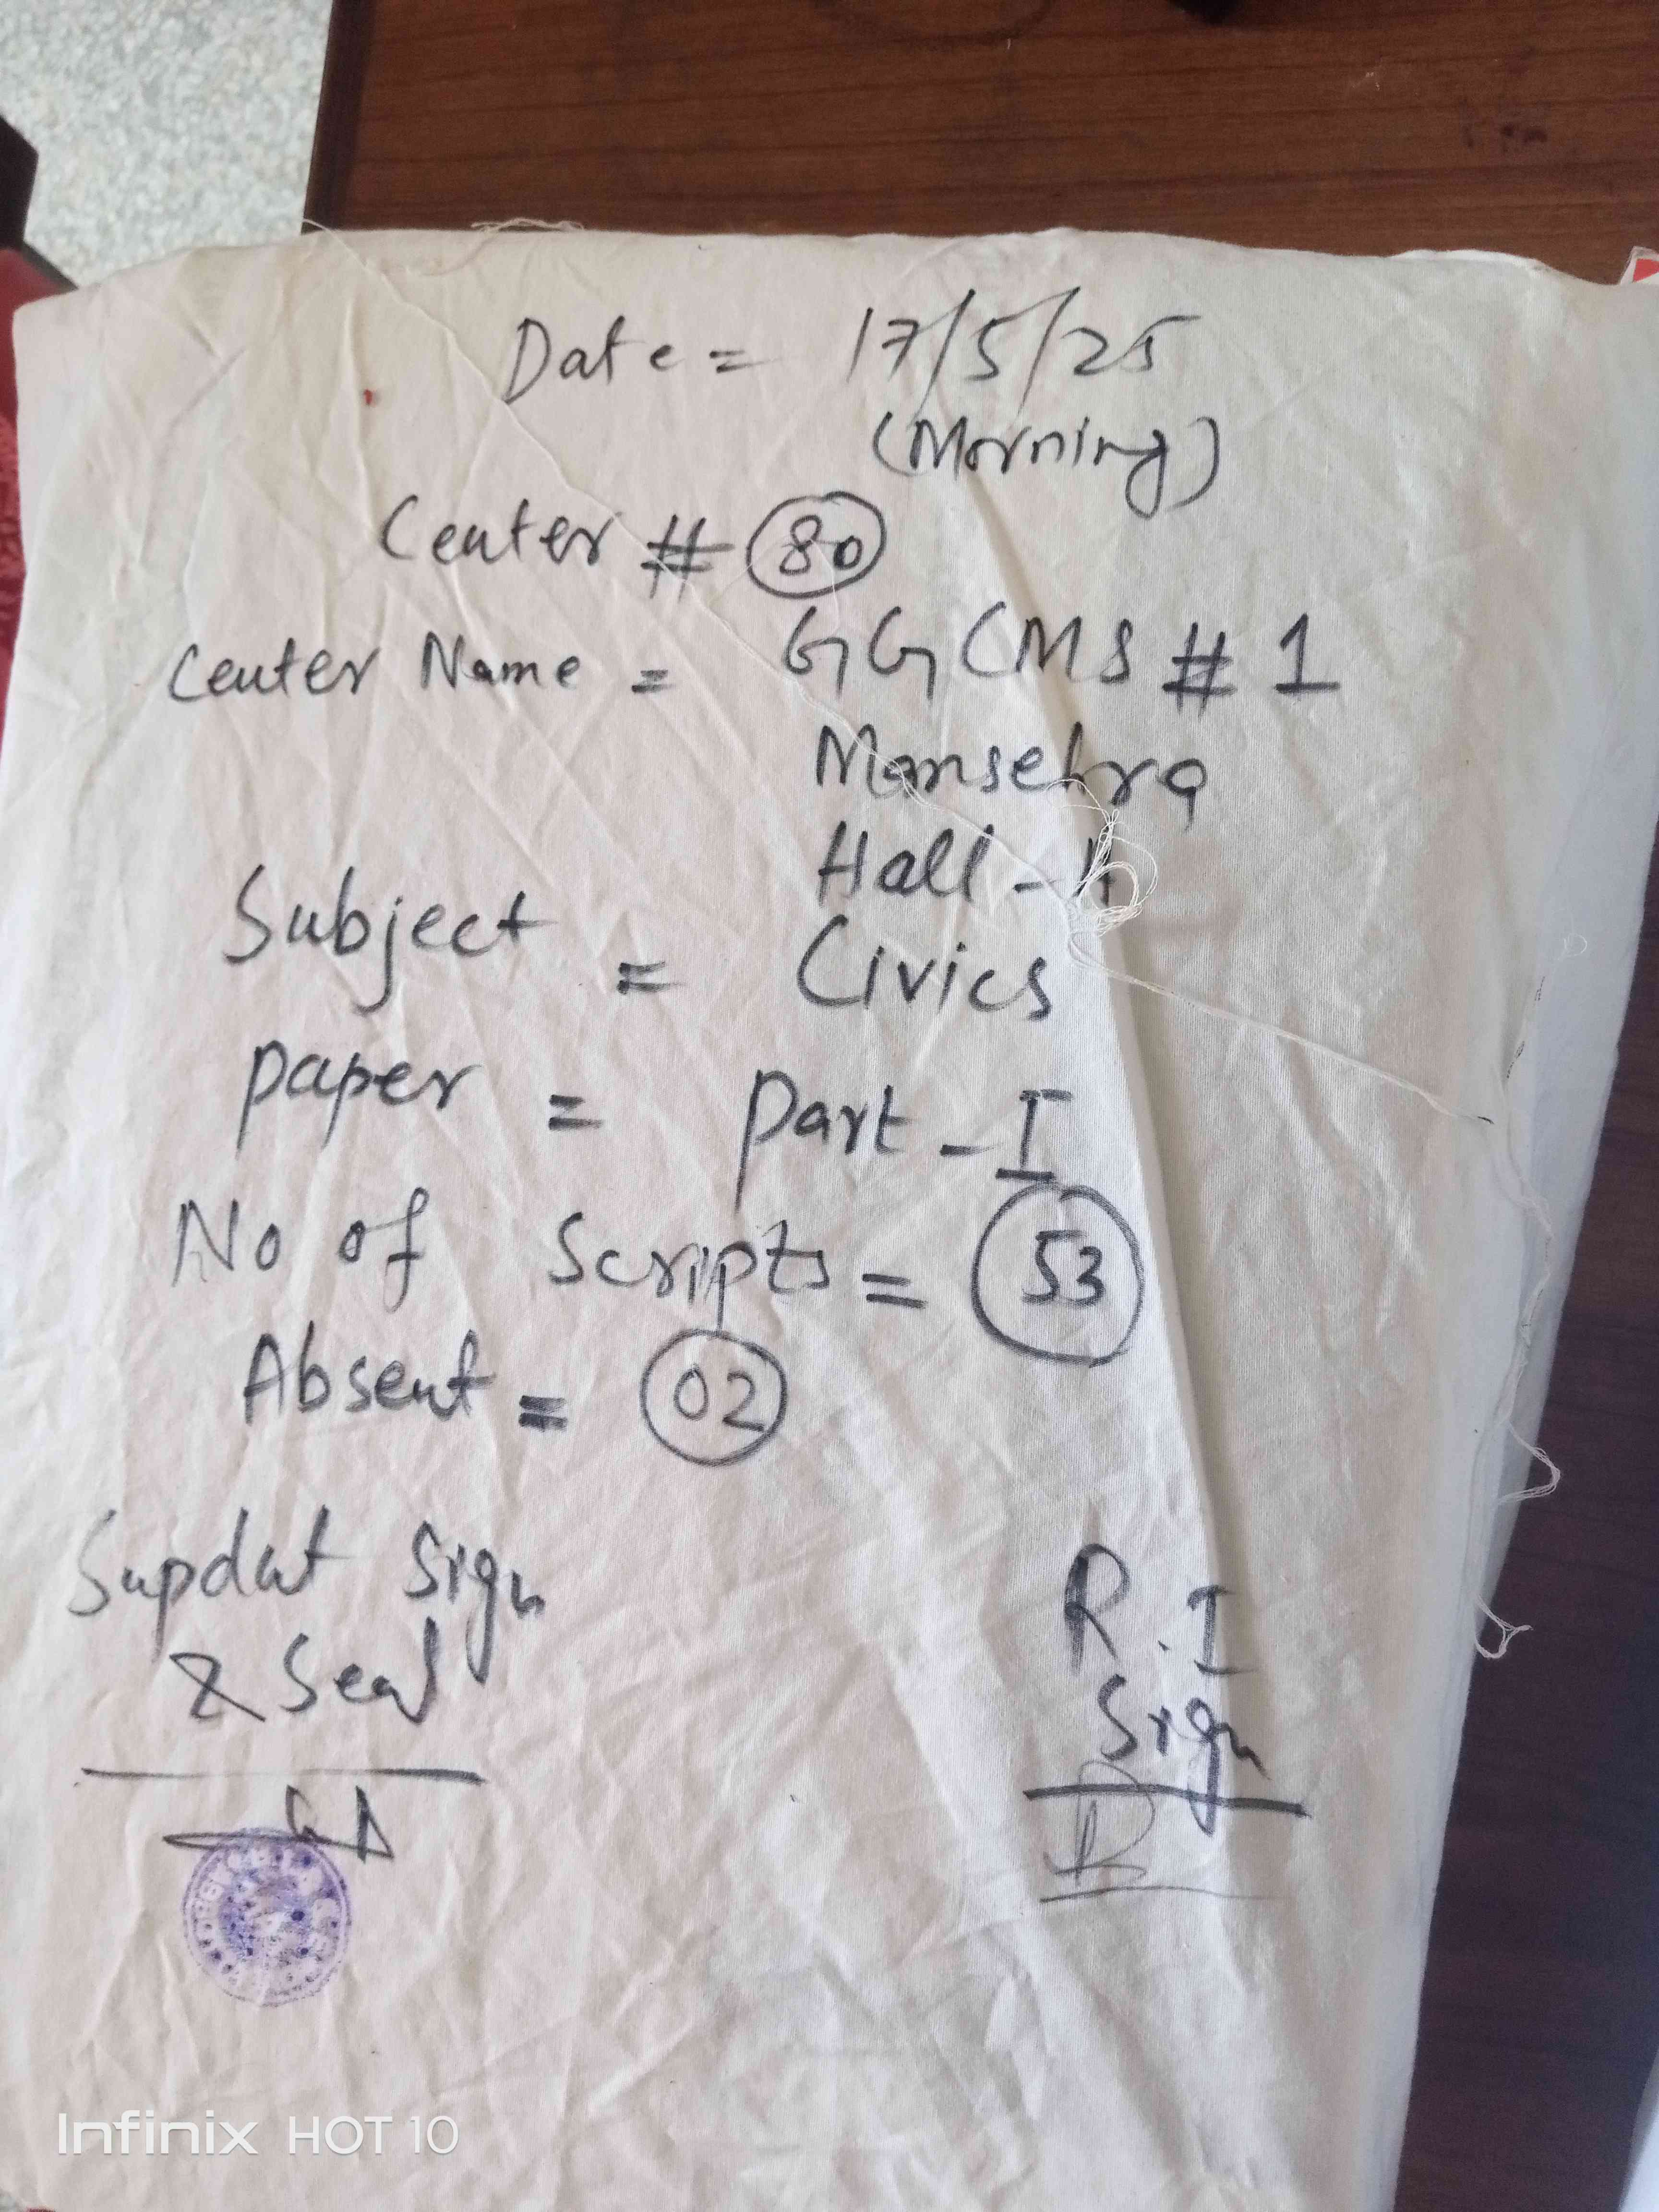 Date = 17/5/25
(Morning)
Center # 80
Center Name = GGCMS # 1
Mansehra
Hall -
Subject = Civics
paper = Part - I
No of Scripts = 53
Absent = 02
Supdat Sign
& Seal
R.I
Sign
Infinix HOT 10